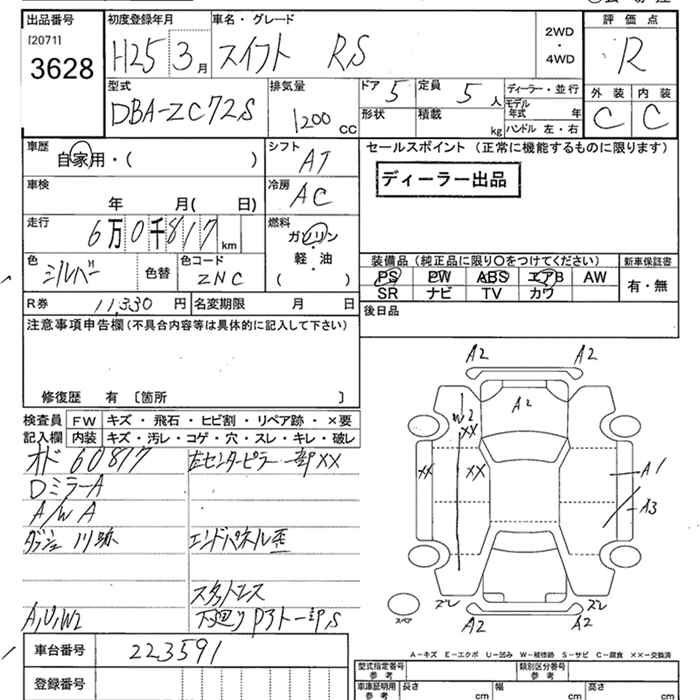 出品番号 初度登録年月 車名・グレード 2WD・4WD 評価点
[2071] 3628
H25 3月 スイフト RS R
型式 排気量 ドア 5 定員 5人 ディーラー・並行 外装 内装
DBA-ZC72S 1200 CC 形状 積載 kg モデル年式 年 C C
ハンドル 左・右
車歴 シフト セールスポイント (正常に機能するものに限ります)
自家用・( ) AT ディーラー出品
車検 冷房
年 月( 日) AC
走行 燃料
6万0千817km ガソリン
軽・油
( )
色 色替 色コード 装備品(純正品に限り〇をつけてください) 新車保証書
シルバー ZNC PS PW ABS エアB AW 有・無
SR ナビ TV カワ
R券 11,330円 名変期限 月 日 後日品
注意事項申告欄(不具合内容等は具体的に記入して下さい)
修復歴 有 〔箇所 〕
検査員 FW キズ・飛石・ヒビ割・リペア跡・×要
記入欄 内装 キズ・汚レ・コゲ・穴・スレ・キレ・破レ
オド 60817 左センターピラー一部XX
DミラーA
A/W A
ダッシュ 川跡 エンドパネル歪
スタットレス
A,U,W2 下廻り P3ト一部S
A2 A2
A2
W2
XX
XX XX A1
A3
ズレ ズレ
スペア A2 A2
A－キズ E－エクボ U－凹み W－補修跡 S－サビ C－腐食 XX－交換済
車台番号 223591 型式指定番号 参考 類別区分番号 参考
登録番号 車庫証明用 参考 長さ cm 幅 cm 高さ cm